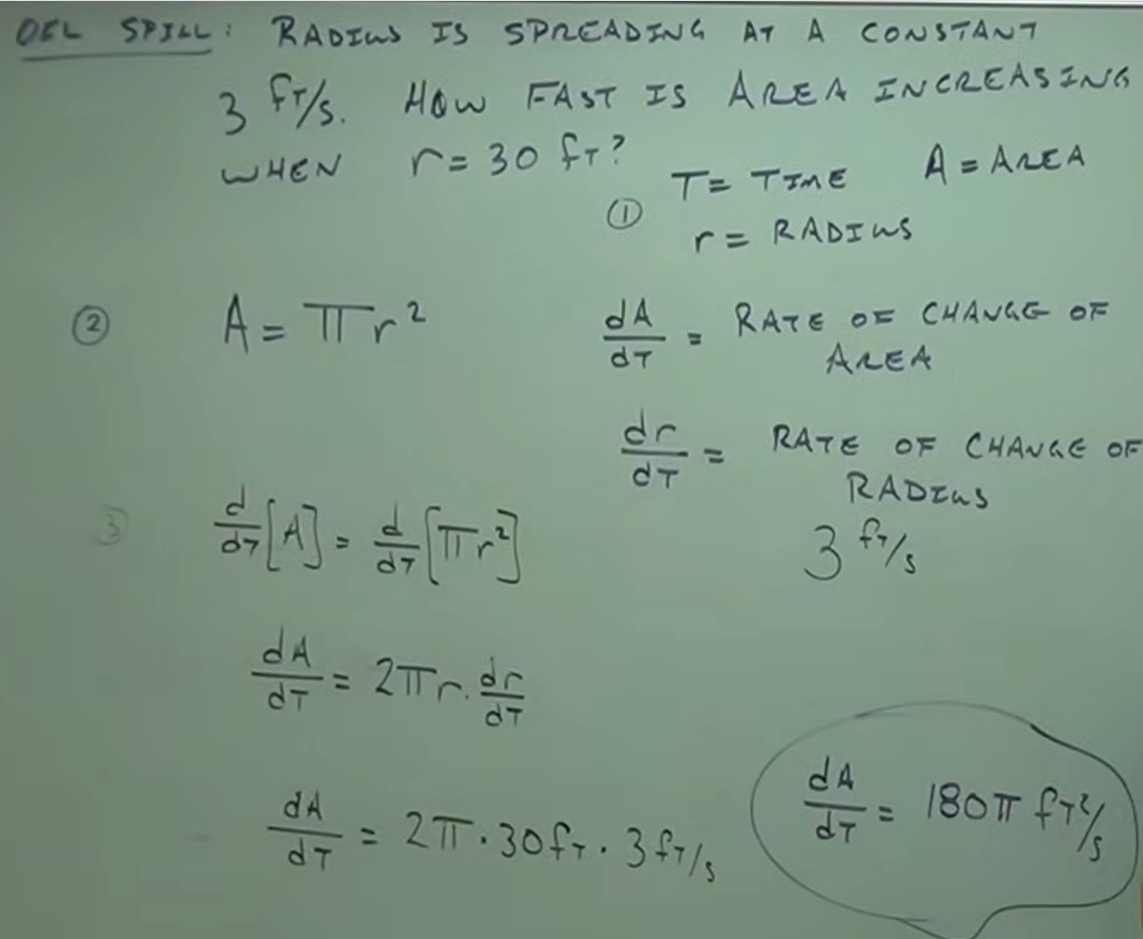 OIL SPILL: RADIUS IS SPREADING AT A CONSTANT
3 FT/S. HOW FAST IS AREA INCREASING
WHEN r = 30 FT?
① T = TIME A = AREA
r = RADIUS
② A = πr²
dA/dT = RATE OF CHANGE OF
AREA
dr/dT = RATE OF CHANGE OF
RADIUS
3 FT/S
③ d/dT[A] = d/dT[πr²]
dA/dT = 2πr · dr/dT
dA/dT = 2π · 30FT · 3FT/S
dA/dT = 180π FT²/S